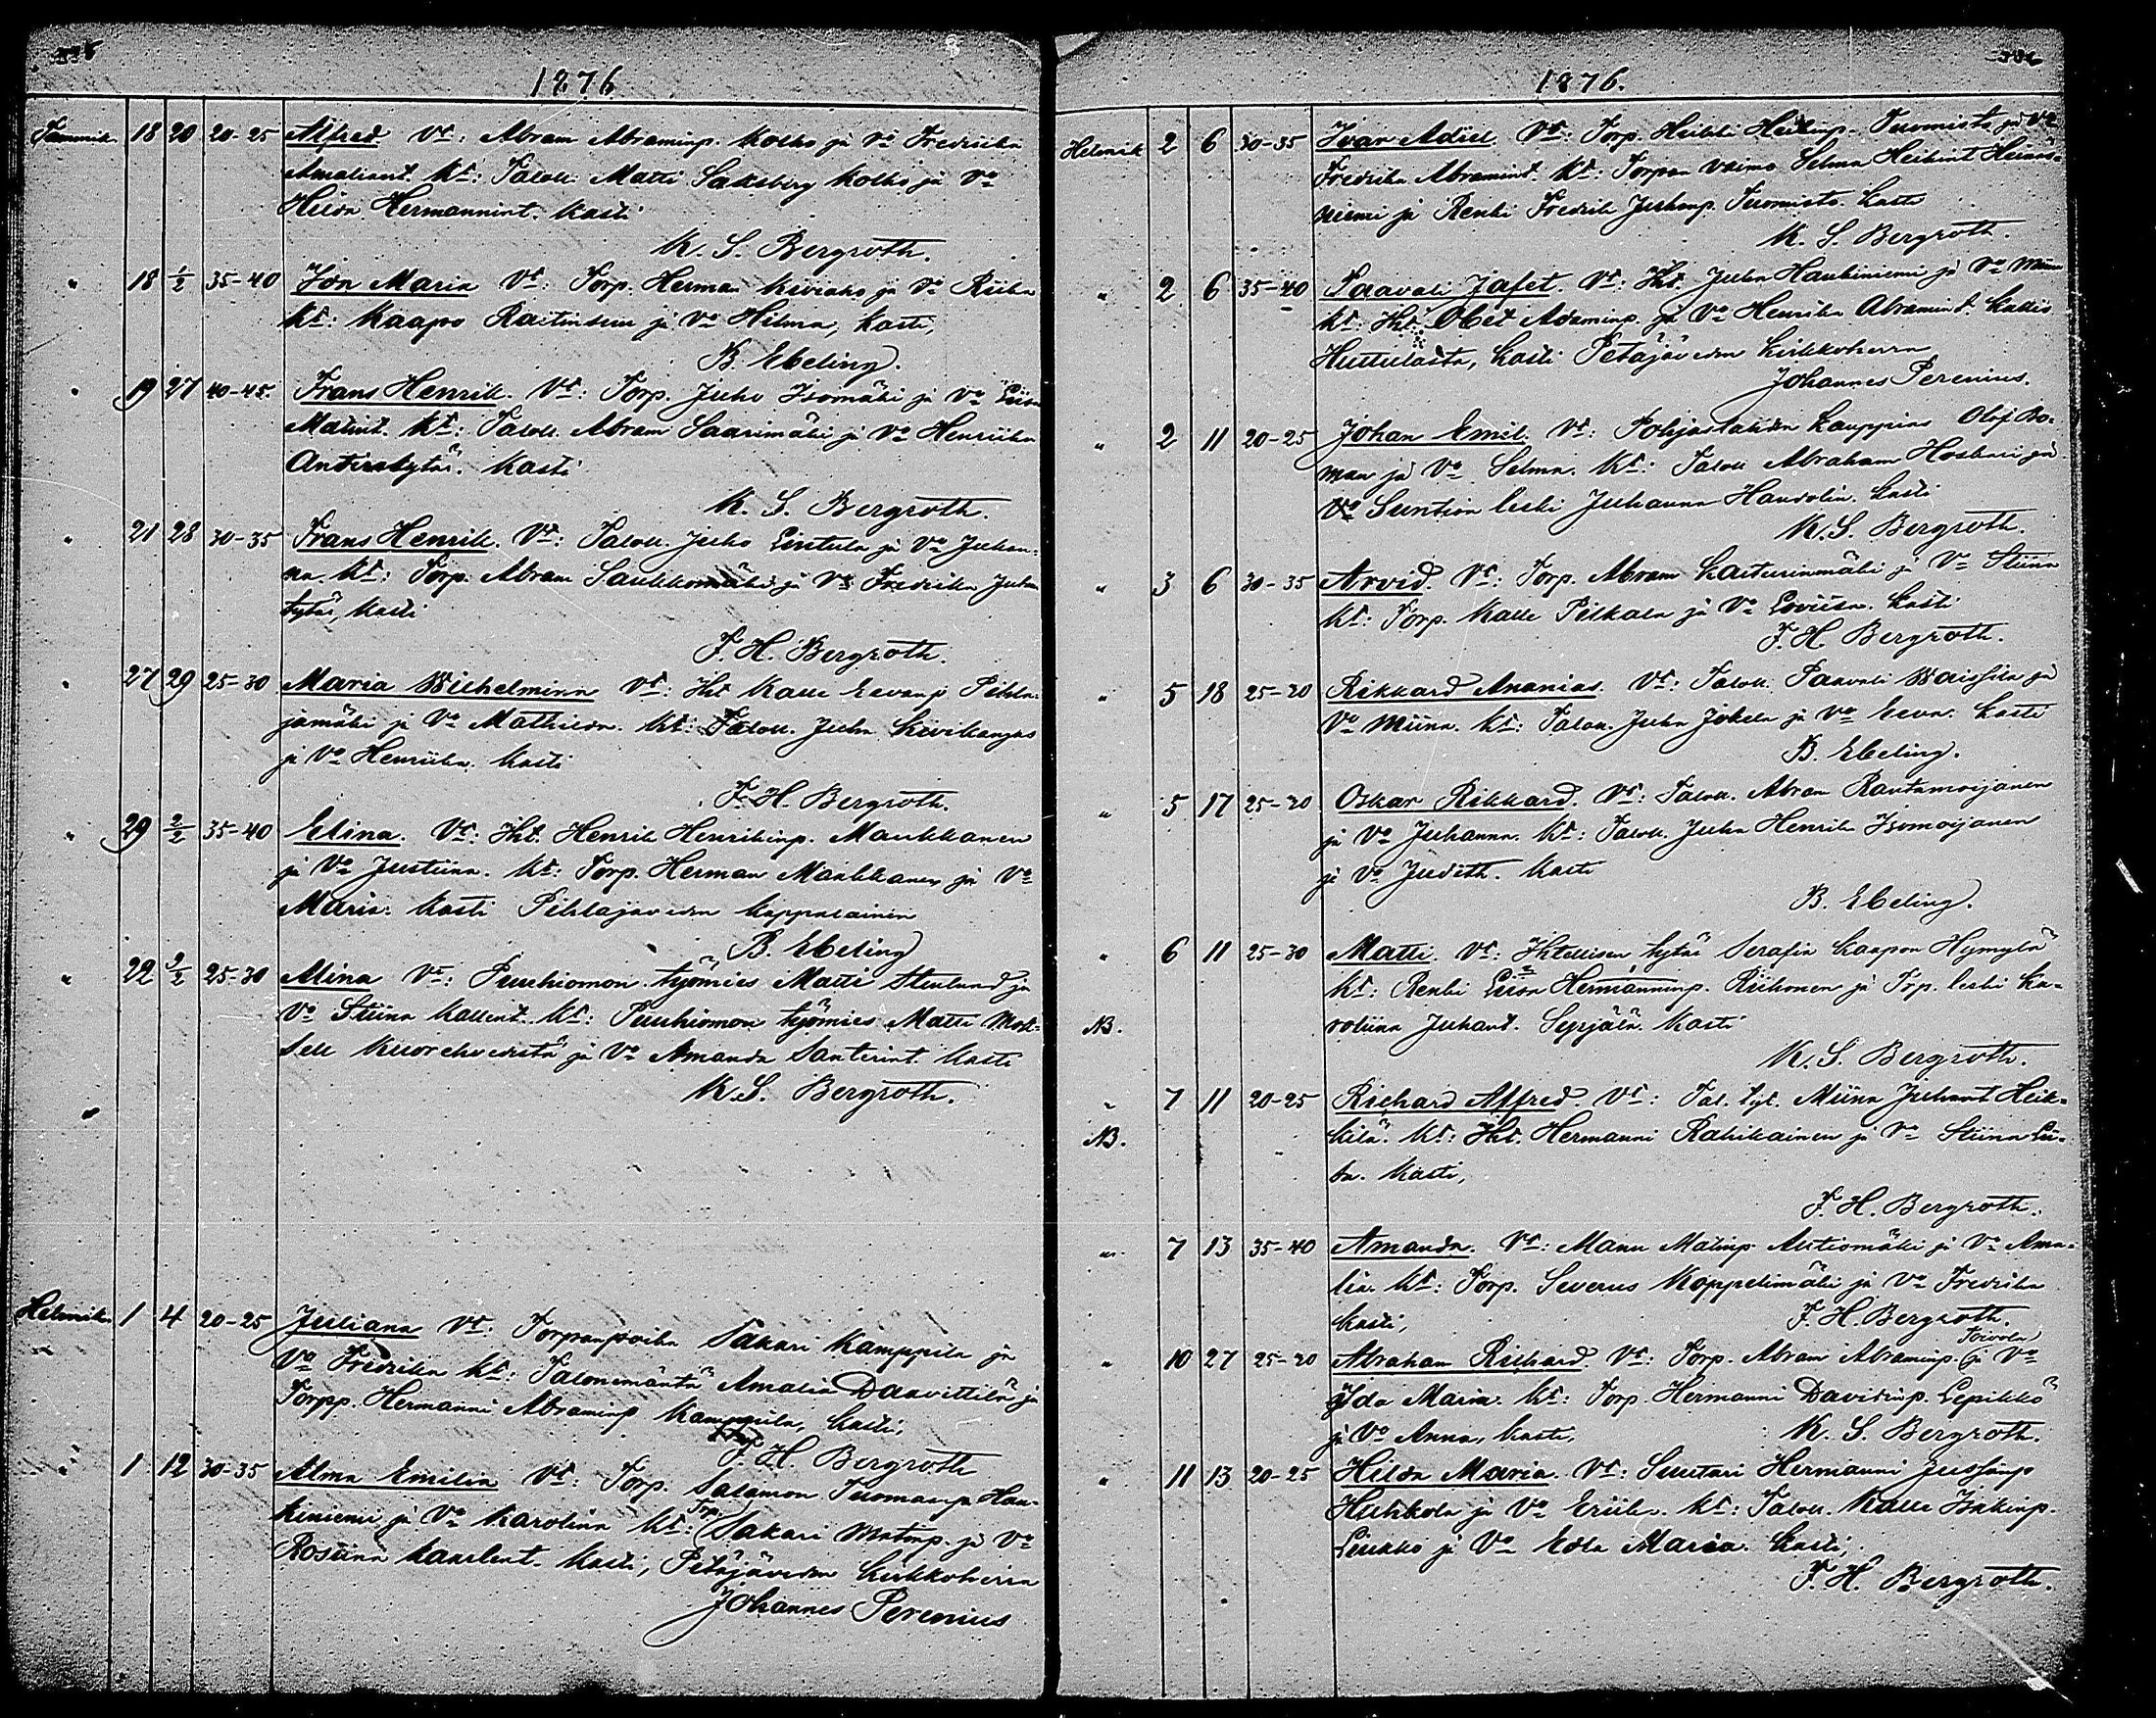 1876
Tammik. 18 20 20-25 Alfred. Vt: Abram Abraminp. Kolho ja Vo Fredriika
Amaliant. Kt: Taloll. Matti Saksberg Kolho ja Vo
Hilda Hermannint. Kasti
K. S. Bergroth.
" 18 1/2 35-40 Ida Maria Vt: Torp. Herman Kiviaho ja Vo Riika
Kt: Kaapo ja Vo Hilma, kasti,
B. Ebeling.
" 19 27 40-45. Frans Henrik. Vt: Torp. Juho Isomäki ja Vo Liisa
Matint. Kt: Taloll. Abram Saarimäki ja Vo Henriika
Antintytär. Kasti
K. S. Bergroth.
" 21 28 30-35 Frans Henrik. Vt: Taloll. Juho Lintula ja Vo Juhan-
na. Kt: Torp. Abram Saukkomäki ja Vo Fredrika Juhan
tytär, kasti
F. H. Bergroth.
" 27 29 25-30 Maria Wilhelmina Vt: Itt Kalle Eevanp Pihla-
jamäki ja Vo Mathilda. Kt: Taloll. Juha Kivikangas
ja Vo Henriika. Kasti
F. H. Bergroth.
" 29 2/2 35-40 Elina. Vt: Itt. Henrik Henrikinp. Maukkanen
ja Vo Justiina. Kt: Torp. Herman Maukkanen ja Vo
Maria. Kasti Pihlajaveden kappalainen
B. Ebeling
" 22 2/2 25-30 Mina Vt: Puuhiomon työmies Matti Stenlund ja
Vo Stiina Kallent. Kt: Puuhiomon työmies Matti
Kuorehvedestä ja Vo Amanda Santerint. Kasti
K. S. Bergroth.
Helmik. 1 4 20-25 Juliana Vt: Torpanpoika Sakari Kamppila ja
Vo Fredrika Kt: Talonemäntä Amalia Daavittila ja
Torpp. Hermanni Abraminp Kamppila, kasti;
F. H Bergroth
" 1 12 30-35 Alma Emilia Vt: Torp. Salamon Tuomaanp Hau-
kiniemi ja Vo Karolina Kt: Trp. Sakari Matinp. ja Vo
Rosiina Kaarlent. Kasti, Petäjäveden Kirkkoherra
Johannes Perenius
1876.
Helmik 2 6 30-35 Ivar Adiel. Vt: Torp. Heikki Heikinp. Tuomisto ja Vo
Fredrika Abramint. Kt: Torpan vaimo Selma Heikint Heinäs-
niemi ja Renki Fredrik Juhonp. Tuomisto. Kasti
K. S. Bergroth.
" 2 6 35-40 Paavali Jafet. Vt: Itt. Juha Haukiniemi ja Vo Miina
Kt: Itt. Obet Adaminp. ja Vo Henrika Abramint.
Huttulasta, kasti Petäjäveden Kirkkoherra
Johannes Perenius.
" 2 11 20-25 Johan Emil. Vt: Pohjaslahden kauppias Olof Bo-
man ja Vo Selma. Kt: Taloll Abraham Hoskari ja
Vo Suntion leski Juhanna Handolin. Kasti
K. S. Bergroth.
" 3 6 30-35 Arvid. Vt: Torp. Abram Kaiturinmäki ja Vo Stiina
Kt: Torp. Kalle Pilkala ja Vo Loviisa. Kasti
F. H. Bergroth.
" 5 18 25-30 Rikkard Ananias. Vt: Taloll. Paavali Waissila ja
Vo Miina. Kt: Taloll. Juha Jokela ja Vo Eeva. Kasti
B. Ebeling.
" 5 17 25-30 Oskar Rikkard. Vt: Taloll. Abram Rantamoijanen
ja Vo Juhanna. Kt: Taloll. Juha Henrik Isomoijanen
ja Vo Judith. Kasti
B. Ebeling.
" 6 11 25-30 Matti. Vt: Ittellisen tytär Serafia Kaapon Hymylä
Kt: Renki Hermanninp. Riihonen ja Trp. leski Ka-
NB. roliina Juhant. Syrjälä. Kasti
K. S. Bergroth.
" 7 11 20-25 Richard Alfred Vt: Tal. tyt. Miina Juhant Heik-
NB. kilä. Kt: Itt. Hermanni Rahikainen ja Vo Stiina Lii-
sa. Kasti,
F. H. Bergroth.
" 7 13 35-40 Amanda. Vt: Manu Matinp Autiomäki ja Vo Ama-
lia. Kt: Torp. Severus Koppelimäki ja Vo Fredrika
kasti, F. H. Bergroth.
" 10 27 25-30 Abraham Richard. Vt: Torp. Abram Abraminp. Toivola ja Vo
Ida Maria. Kt: Torp. Hermanni Davidinp. Lepikkö
ja Vo Anna, kasti, K. S. Bergroth.
" 11 13 20-25 Hilda Maria. Vt: Suutari Hermanni Jussinp
Huhkola ja Vo Eriika. Kt: Taloll. Kalle Isakinp.
Liukko ja Vo Edla Maria. Kasti;
F. H. Bergroth.